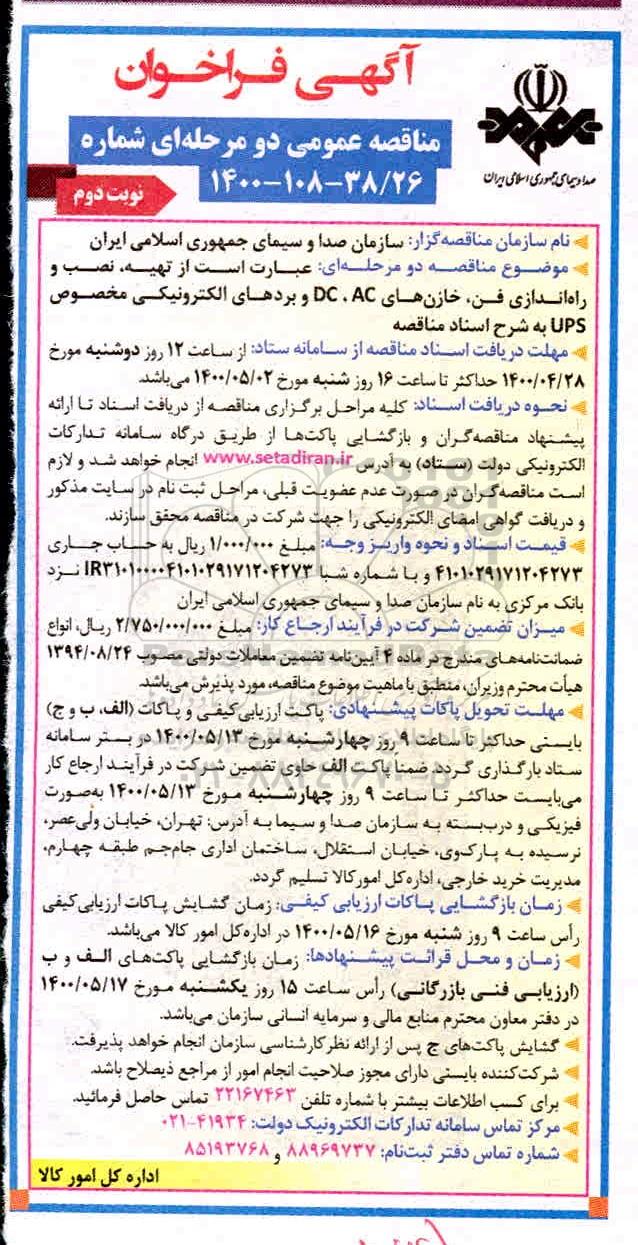 آگهی فراخوان
مناقصه عمومی دو مرحله‌ای شماره
۱۴۰۰-۱۰۸-۳۸/۲۶
نوبت دوم
صدا و سیمای جمهوری اسلامی ایران
نام سازمان مناقصه‌گزار: سازمان صدا و سیمای جمهوری اسلامی ایران
موضوع مناقصه دو مرحله‌ای: عبارت است از تهیه، نصب و
راه‌اندازی فن، خازن‌های DC ، AC و بردهای الکترونیکی مخصوص
UPS به شرح اسناد مناقصه
مهلت دریافت اسناد مناقصه از سامانه ستاد: از ساعت ۱۲ روز دوشنبه مورخ
۱۴۰۰/۰۴/۲۸ حداکثر تا ساعت ۱۶ روز شنبه مورخ ۱۴۰۰/۰۵/۰۲ می‌باشد.
نحوه دریافت اسناد: کلیه مراحل برگزاری مناقصه از دریافت اسناد تا ارائه
پیشنهاد مناقصه‌گران و بازگشایی پاکت‌ها از طریق درگاه سامانه تدارکات
الکترونیکی دولت (ستاد) به آدرس www.setadiran.ir انجام خواهد شد و لازم
است مناقصه‌گران در صورت عدم عضویت قبلی، مراحل ثبت نام در سایت مذکور
و دریافت گواهی امضای الکترونیکی را جهت شرکت در مناقصه محقق سازند.
قیمت اسناد و نحوه واریز وجه: مبلغ ۱/۰۰۰/۰۰۰ ریال به حساب جاری
۴۱۰۱۰۲۹۱۷۱۲۰۴۲۷۳ و با شماره شبا IR۳۱۰۱۰۰۰۰۴۱۰۱۰۲۹۱۷۱۲۰۴۲۷۳ نزد
بانک مرکزی به نام سازمان صدا و سیمای جمهوری اسلامی ایران
میزان تضمین شرکت در فرآیند ارجاع کار: مبلغ ۲/۷۵۰/۰۰۰/۰۰۰ ریال، انواع
ضمانت‌نامه‌های مندرج در ماده ۴ آیین‌نامه تضمین معاملات دولتی مصوب ۱۳۹۴/۰۸/۲۴
هیأت محترم وزیران، منطبق با ماهیت موضوع مناقصه، مورد پذیرش می‌باشد.
مهلت تحویل پاکات پیشنهادی: پاکت ارزیابی کیفی و پاکات (الف، ب و ج)
بایستی حداکثر تا ساعت ۹ روز چهارشنبه مورخ ۱۴۰۰/۰۵/۱۳ در بستر سامانه
ستاد بارگذاری گردد ضمنا پاکت الف حاوی تضمین شرکت در فرآیند ارجاع کار
می‌بایست حداکثر تا ساعت ۹ روز چهارشنبه مورخ ۱۴۰۰/۰۵/۱۳ به‌صورت
فیزیکی و درب‌بسته به سازمان صدا و سیما به آدرس: تهران، خیابان ولی‌عصر،
نرسیده به پارک‌وی، خیابان استقلال، ساختمان اداری جام‌جم طبقه چهارم،
مدیریت خرید خارجی، اداره کل امور کالا تسلیم گردد.
زمان بازگشایی پاکات ارزیابی کیفی: زمان گشایش پاکات ارزیابی کیفی
رأس ساعت ۹ روز شنبه مورخ ۱۴۰۰/۰۵/۱۶ در اداره کل امور کالا می‌باشد.
زمان و محل قرائت پیشنهادها: زمان بازگشایی پاکت‌های الف و ب
(ارزیابی فنی بازرگانی) رأس ساعت ۱۵ روز یکشنبه مورخ ۱۴۰۰/۰۵/۱۷
در دفتر معاون محترم منابع مالی و سرمایه انسانی سازمان می‌باشد.
گشایش پاکت‌های ج پس از ارائه نظر کارشناسی سازمان انجام خواهد پذیرفت.
شرکت‌کننده بایستی دارای مجوز صلاحیت انجام امور از مراجع ذیصلاح باشد.
برای کسب اطلاعات بیشتر با شماره تلفن ۲۲۱۶۷۴۶۳ تماس حاصل فرمائید.
مرکز تماس سامانه تدارکات الکترونیک دولت: ۴۱۹۳۴-۰۲۱
شماره تماس دفتر ثبت‌نام: ۸۸۹۶۹۷۳۷ و ۸۵۱۹۳۷۶۸
اداره کل امور کالا